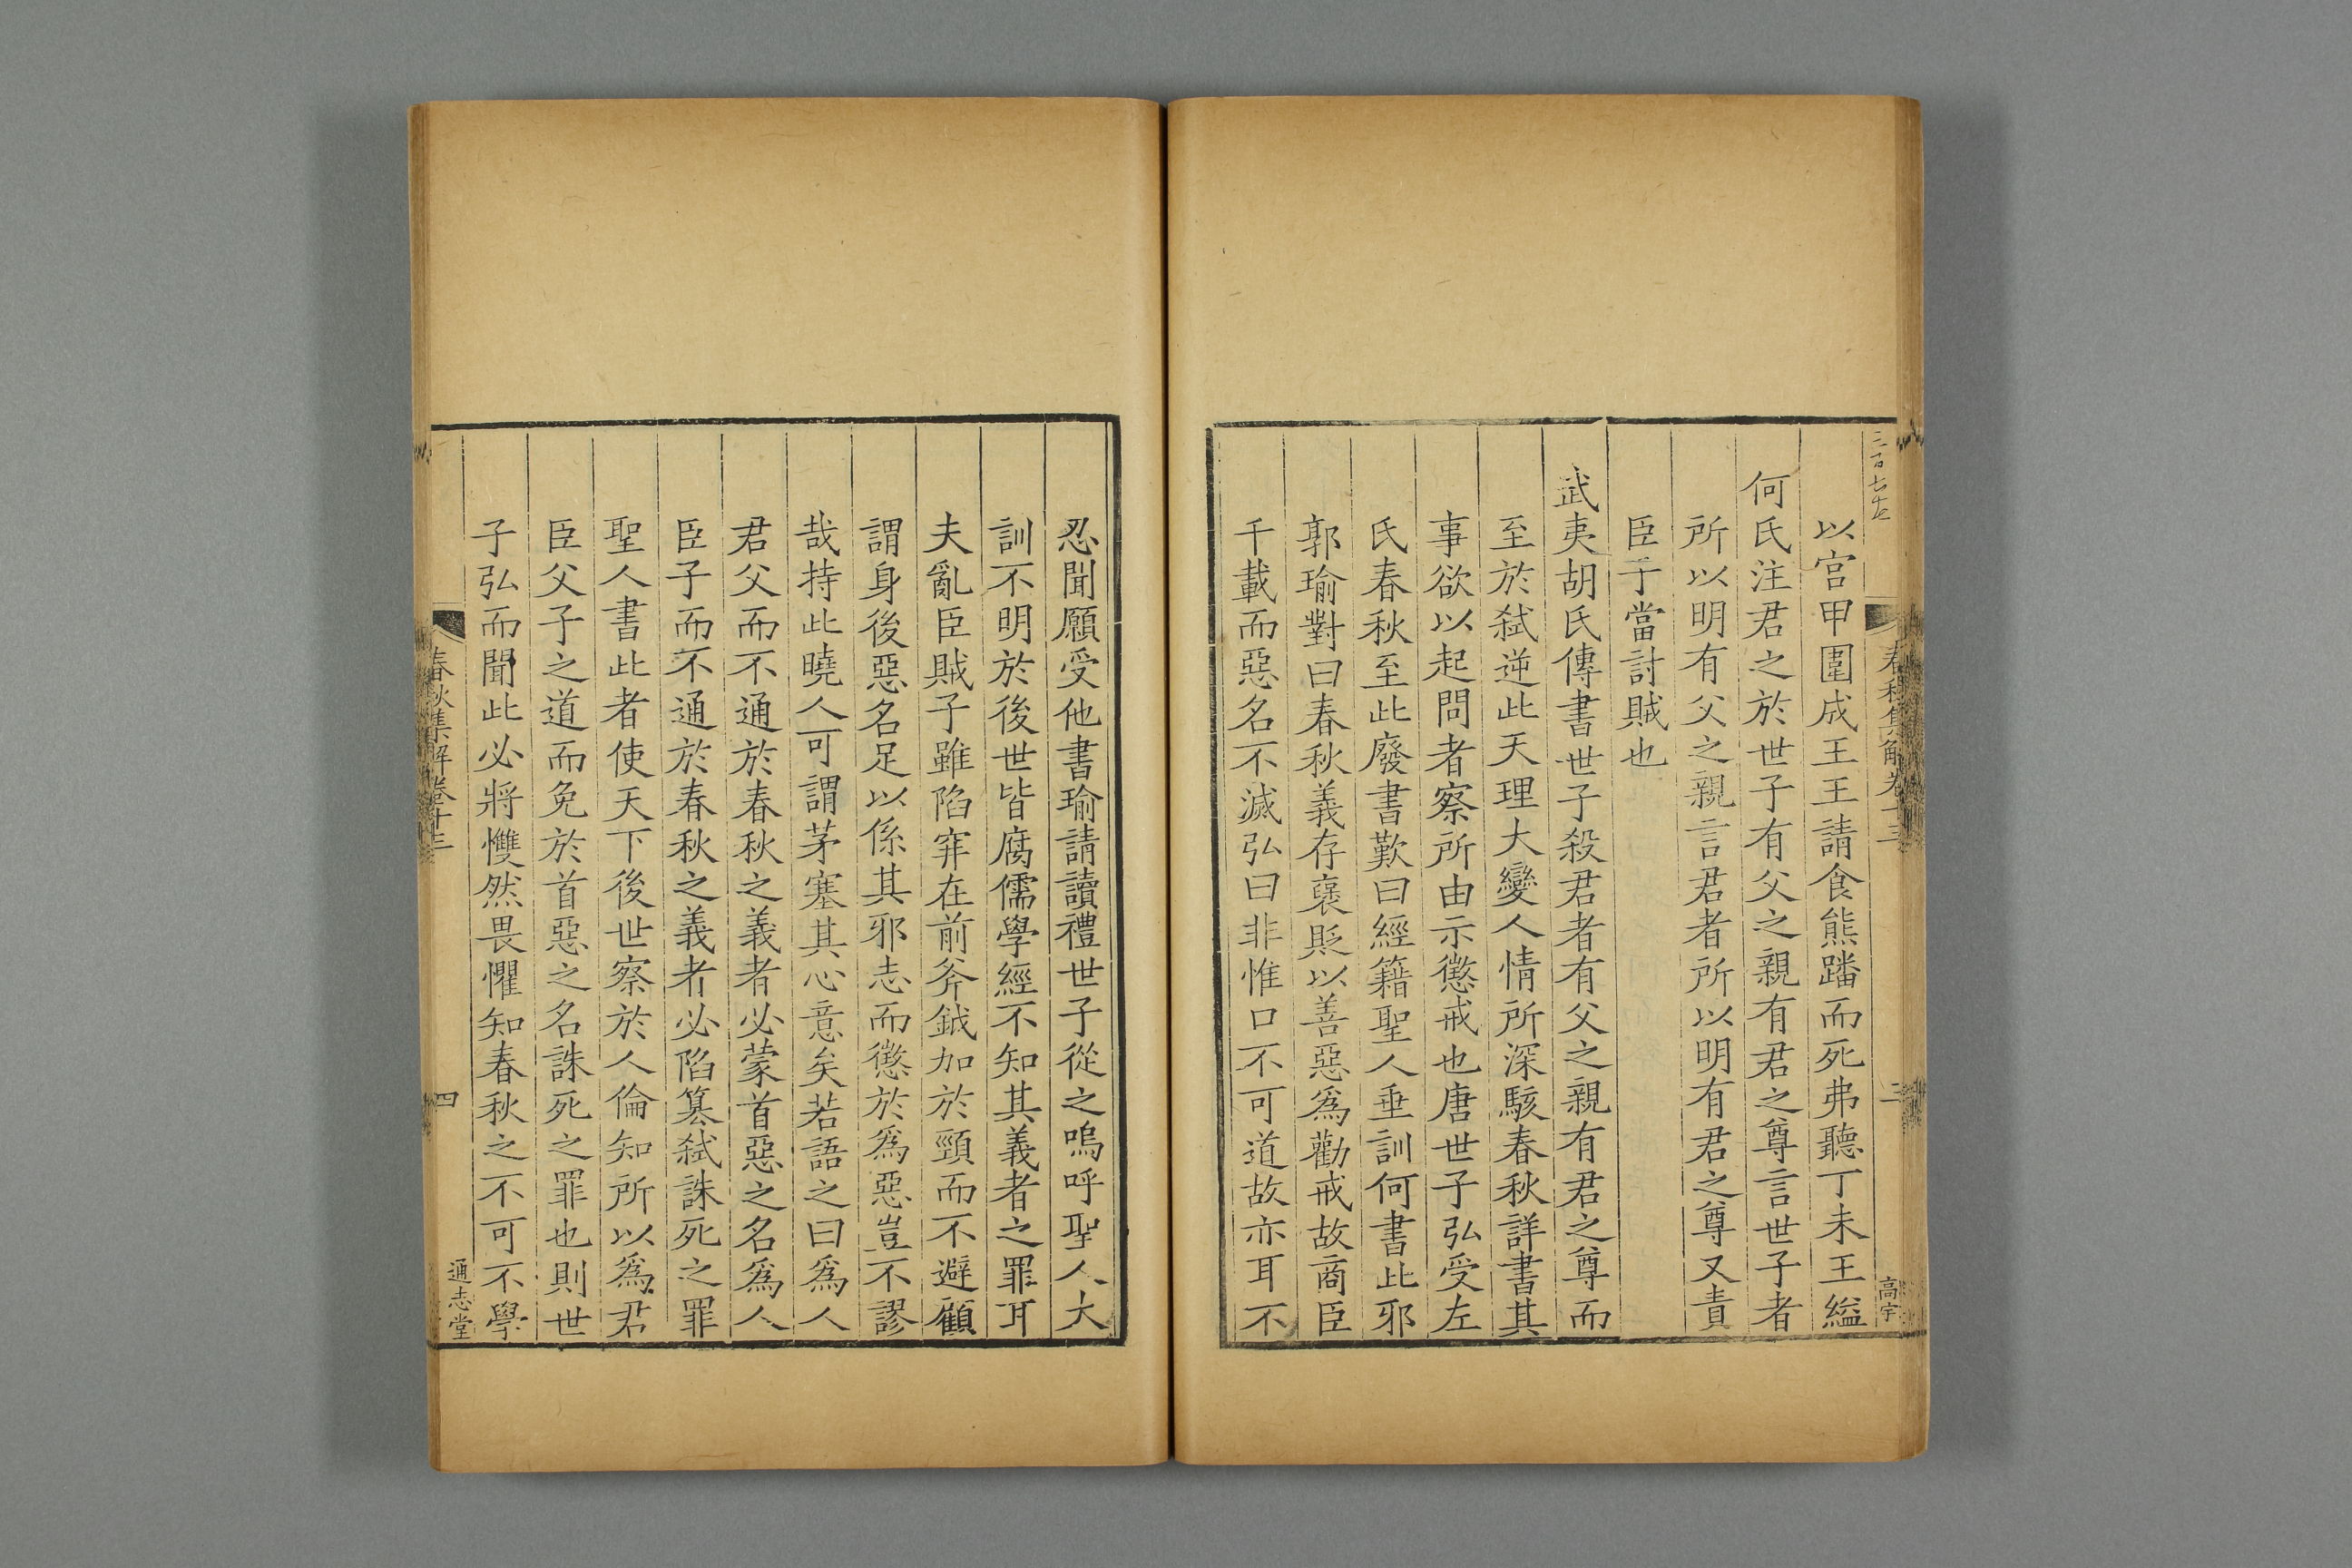 春秋集解卷十三
三
高宇
以宫甲圍成王王請食熊蹯而死弗聽丁未王縊
何氏注君之於世子有父之親有君之尊言世子者
所以明有父之親言君者所以明有君之尊又責
臣子當討賊也
武夷胡氏傳書世子殺君者有父之親有君之尊而
至於弑逆此天理大變人情所深駭春秋詳書其
事欲以起問者察所由示懲戒也唐世子弘受左
氏春秋至此廢書歎曰經籍聖人垂訓何書此邪
郭瑜對曰春秋義存褒貶以善惡爲勸戒故商臣
千載而惡名不滅弘曰非惟口不可道故亦耳不
忍聞願受他書瑜請讀禮世子從之嗚呼聖人大
訓不明於後世皆腐儒學經不知其義者之罪耳
夫亂臣賊子雖陷穽在前斧鉞加於頸而不避顧
謂身後惡名足以係其邪志而懲於爲惡豈不謬
哉持此曉人可謂茅塞其心意矣若語之曰爲人
君父而不通於春秋之義者必蒙首惡之名爲人
臣子而不通於春秋之義者必陷篡弑誅死之罪
聖人書此者使天下後世察於人倫知所以爲君
臣父子之道而免於首惡之名誅死之罪也則世
子弘而聞此必將戄然畏懼知春秋之不可不學
春秋集解卷十三
四
通志堂